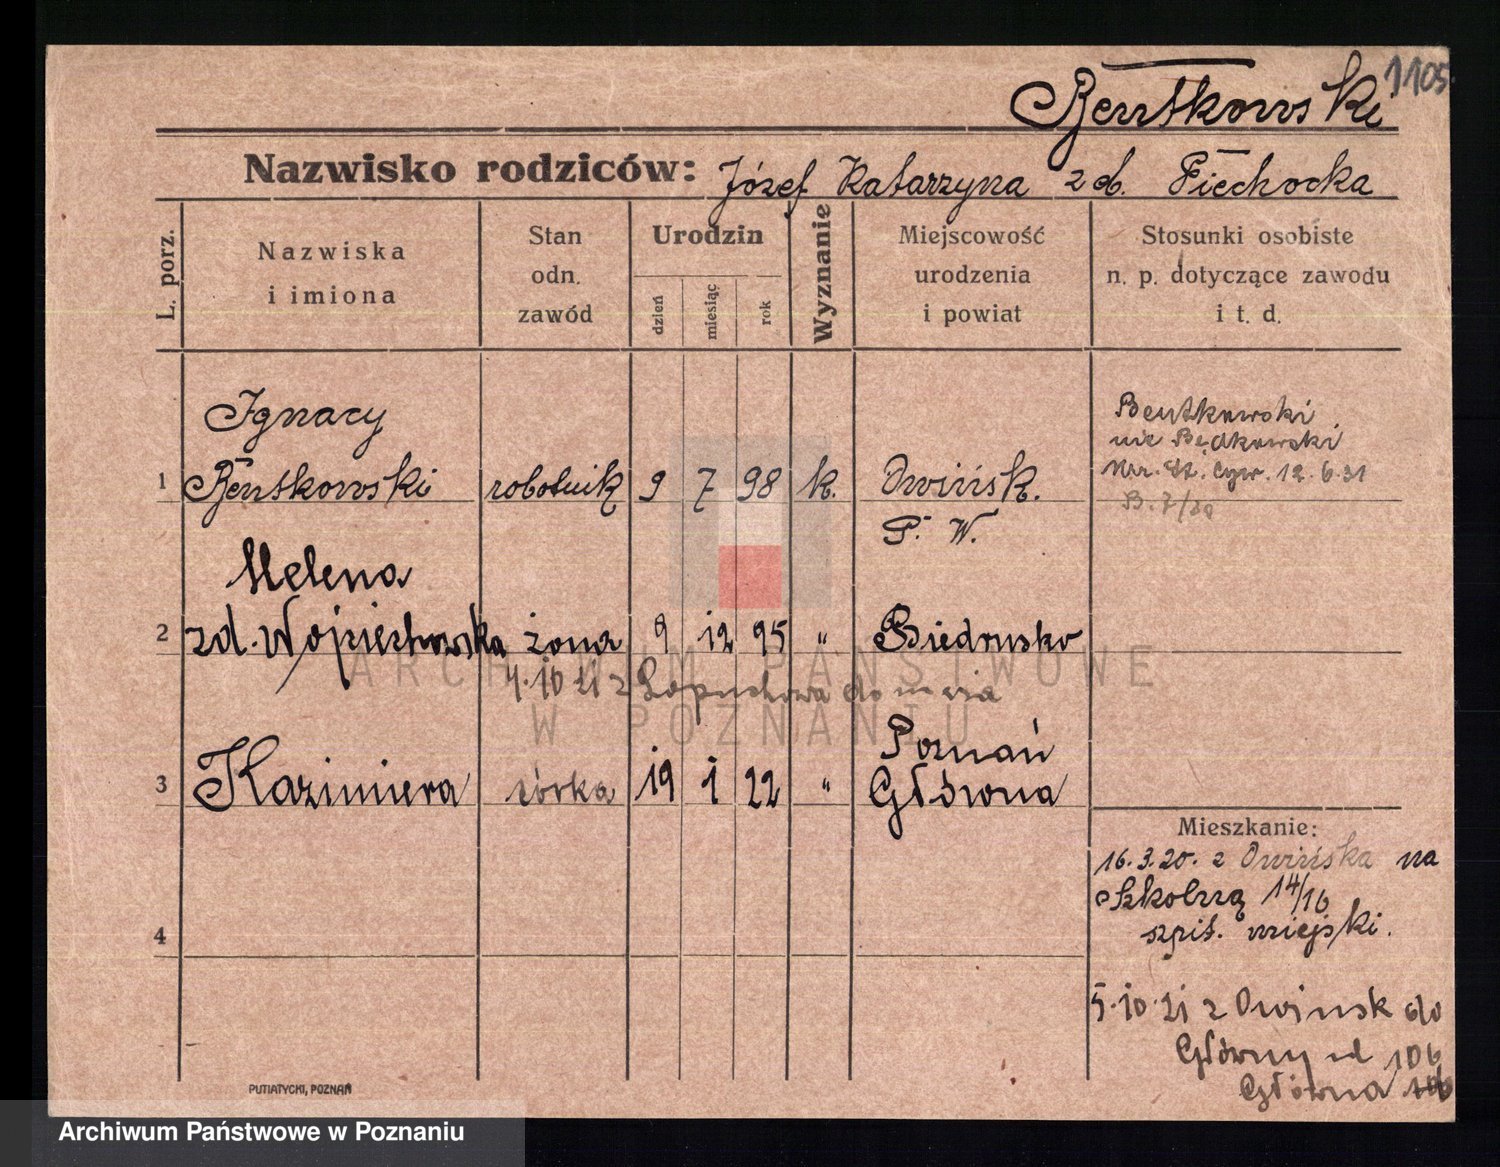 1105.
Bentkowski
Nazwisko rodziców: Józef Katarzyna z d. Piechocka
L. porz.
Nazwiska
i imiona
Stan
odn.
zawód
Urodzin
dzień
miesiąc
rok
Wyznanie
Miejscowość
urodzenia
i powiat
Stosunki osobiste
n. p. dotyczące zawodu
i t. d.
Ignacy
1 Bentkowski robotnik 9 7 98 k. Owińsk.
P. W.
Bentkowski
nie Będkowski
St. Cyw. 12.6.31
B. 7/20
Helena
2 zd. Wojciechowska żona 9 12 95 " Biedrusko
4.10 21 z Łopuchowa do męża
Poznań
3 Kazimiera córka 19 1 22 " Główna
Mieszkanie:
16.3.20. z Owińska na
Szkolną 14/16
szpit. miejski.
4
5.10.21 z Owinsk do
Główny ul 106
Główna
PUTIATYCKI, POZNAŃ
ARCHIWUM PAŃSTWOWE
W POZNANIU
Archiwum Państwowe w Poznaniu